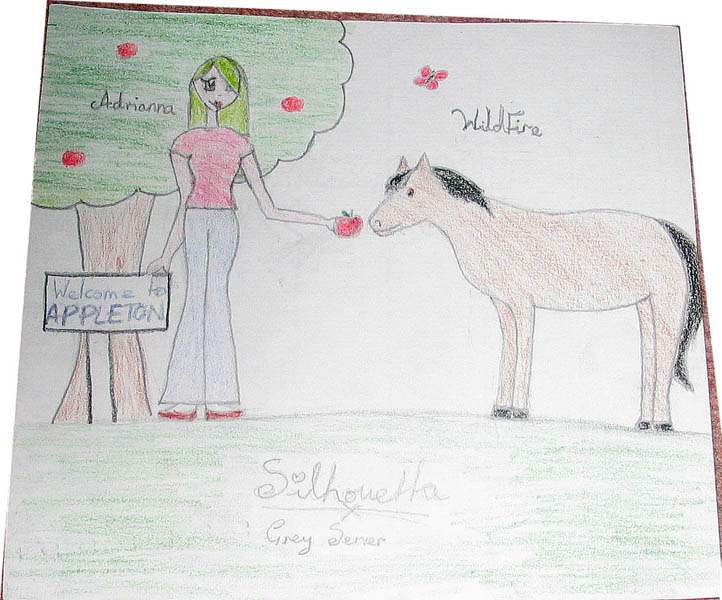 Adrianna
WildFire
Welcome to
APPLETON
Silhouetta
Grey Server